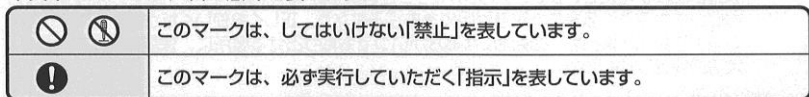 このマークは、してはいけない「禁止」を表しています。
このマークは、必ず実行していただく「指示」を表しています。